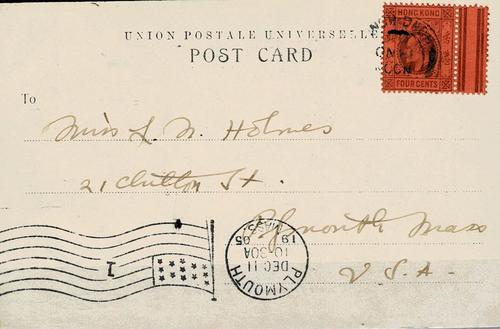 UNION POSTALE UNIVERSELLE
POST CARD
HONG KONG
FOUR CENTS
To
Miss L. N. Holmes
21 Clutton St.
Plymouth Mass
U.S.A.
1
PLYMOUTH
DEC 11
10-30A
19 05
MASS.